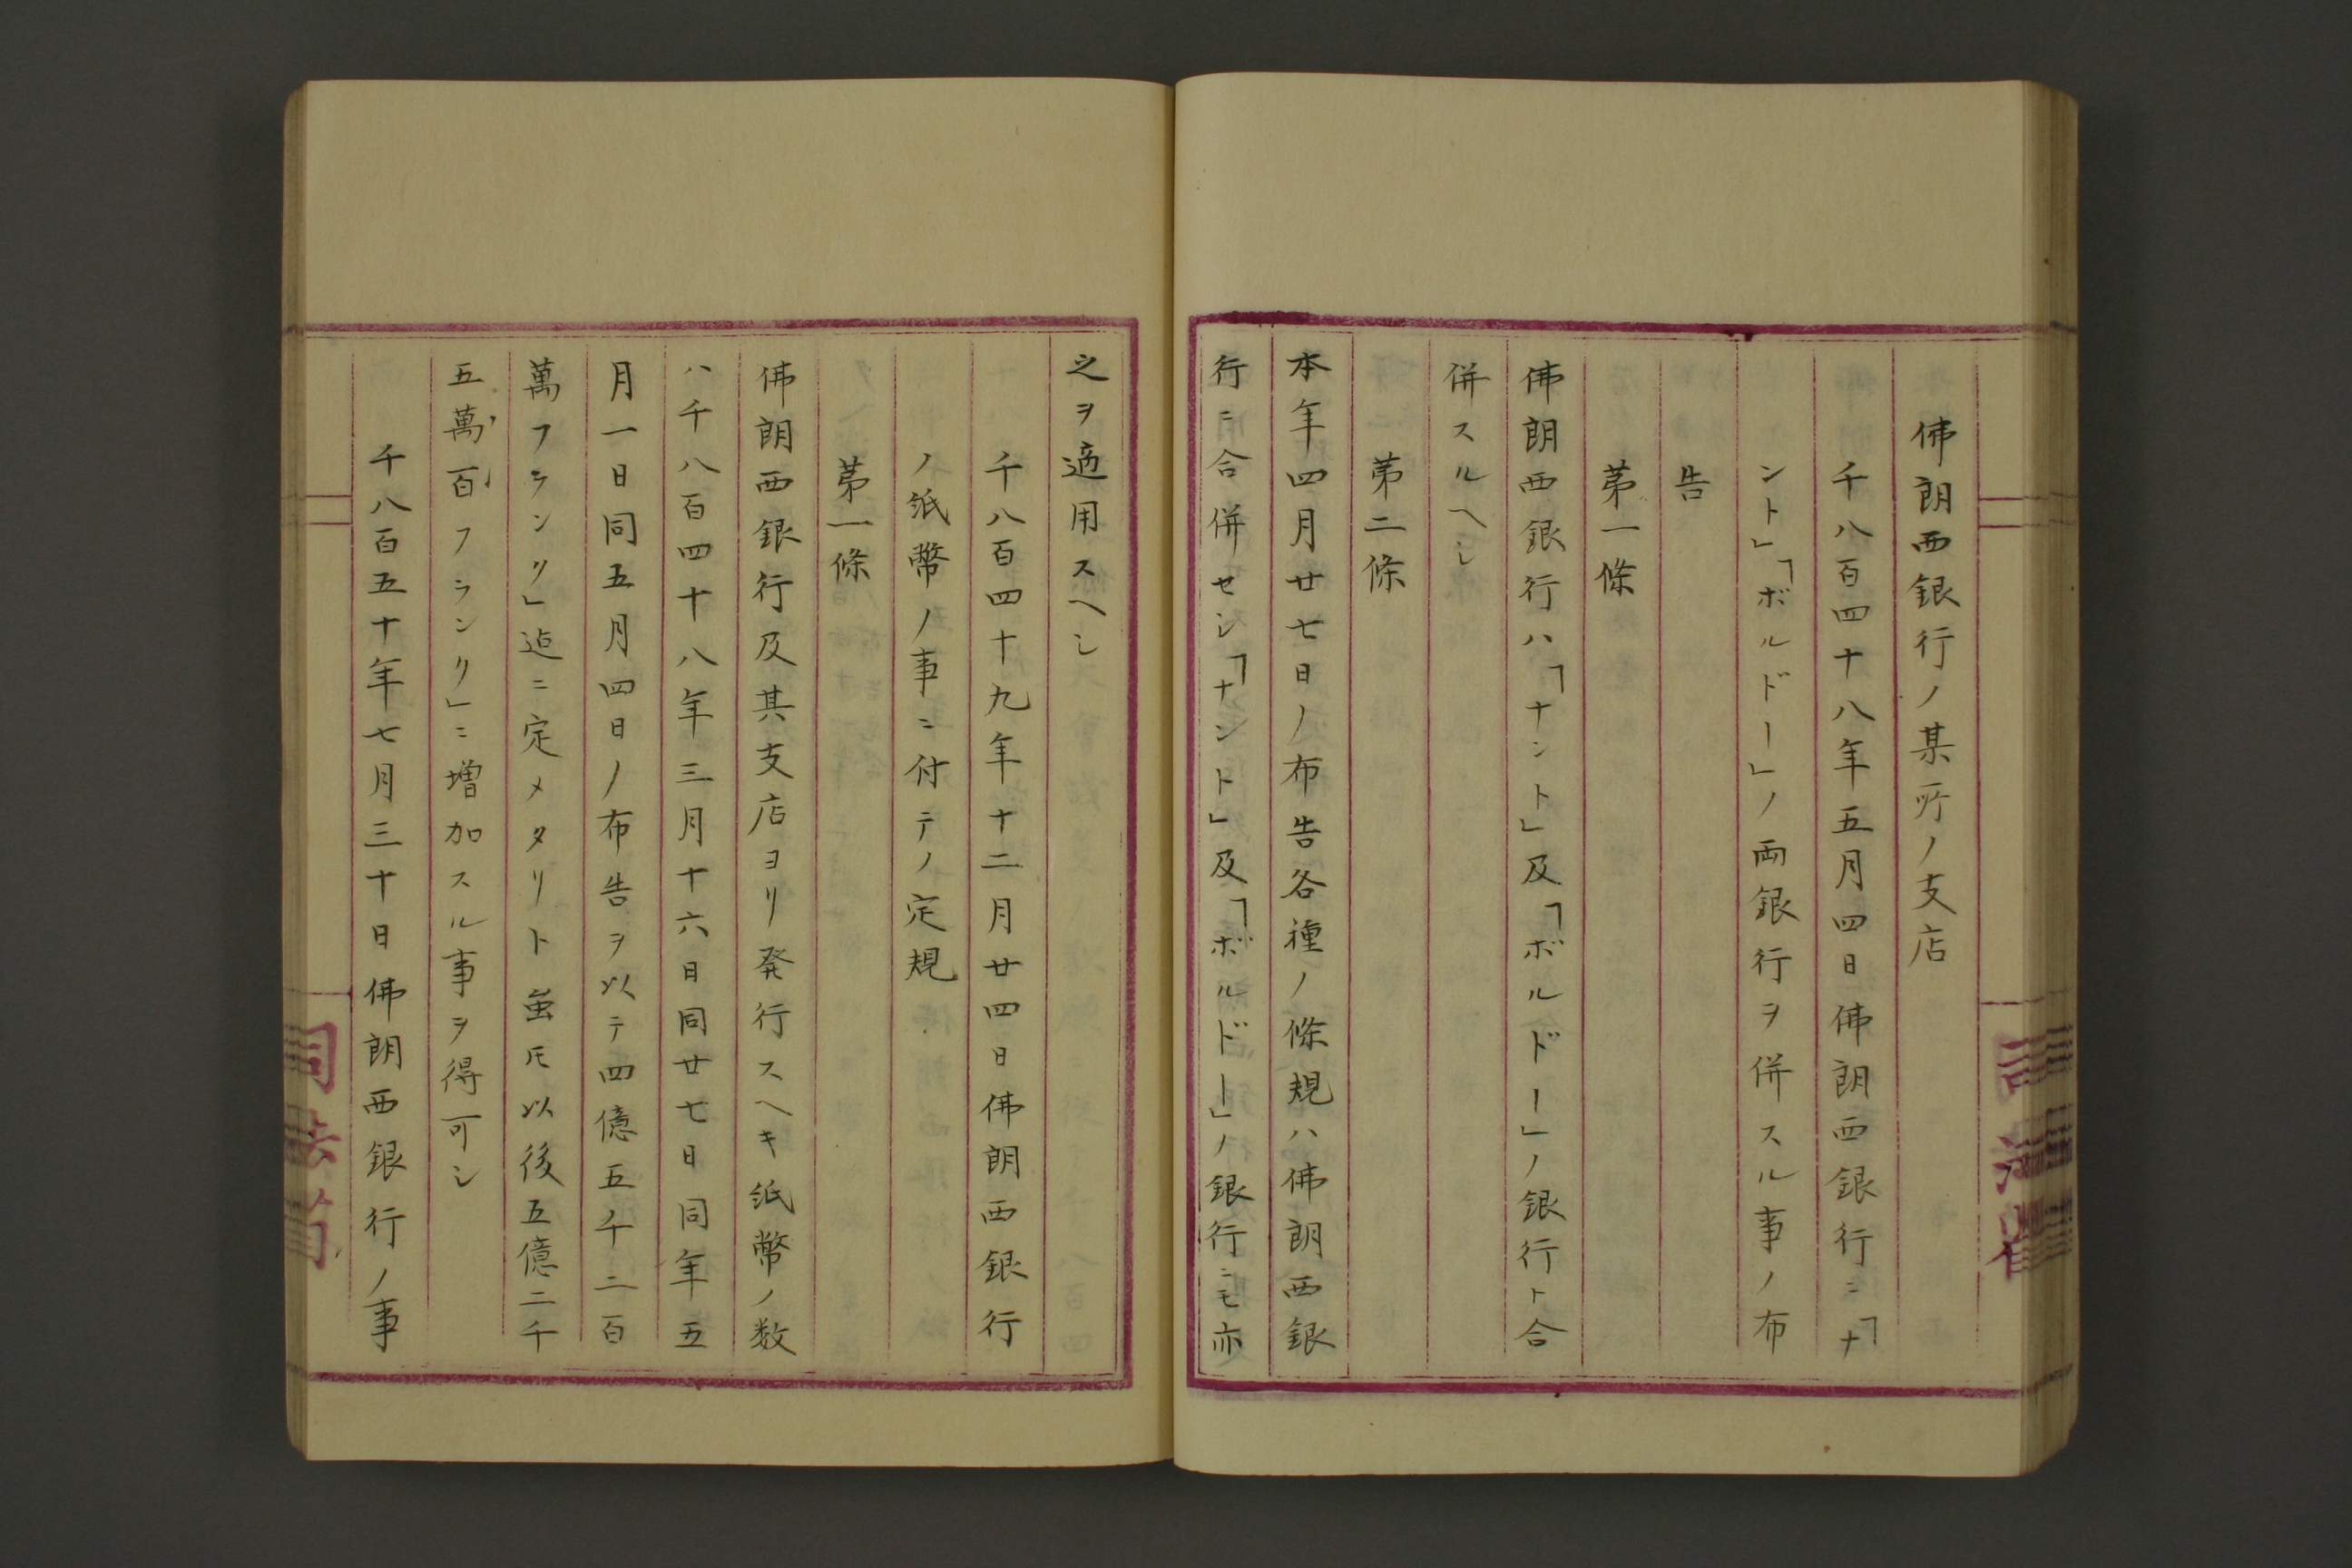 佛朗西銀行ノ某所ノ支店
千八百四十八年五月四日佛朗西銀行ニ「ナ
ント」「ボルドー」ノ両銀行ヲ併スル事ノ布
告
第一條
佛朗西銀行ハ「ナント」及「ボルドー」ノ銀行ト合
併スルヘシ
第二條
本年四月廿七日ノ布告各種ノ條規ハ佛朗西銀
行ニ合併セシ「ナント」及「ボルドー」ノ銀行ニモ亦
之ヲ適用スヘシ
千八百四十九年十二月廿四日佛朗西銀行
ノ紙幣ノ事ニ付テノ定規
第一條
佛朗西銀行及其支店ヨリ発行スヘキ紙幣ノ数
ハ千八百四十八年三月十六日同廿七日同年五
月一日同五月四日ノ布告ヲ以テ四億五千二百
萬フランク」迠ニ定メタリト虽𪜈以後五億二千
五萬百フランク」ニ増加スル事ヲ得可シ
千八百五十年七月三十日佛朗西銀行ノ事
司法省
司法省